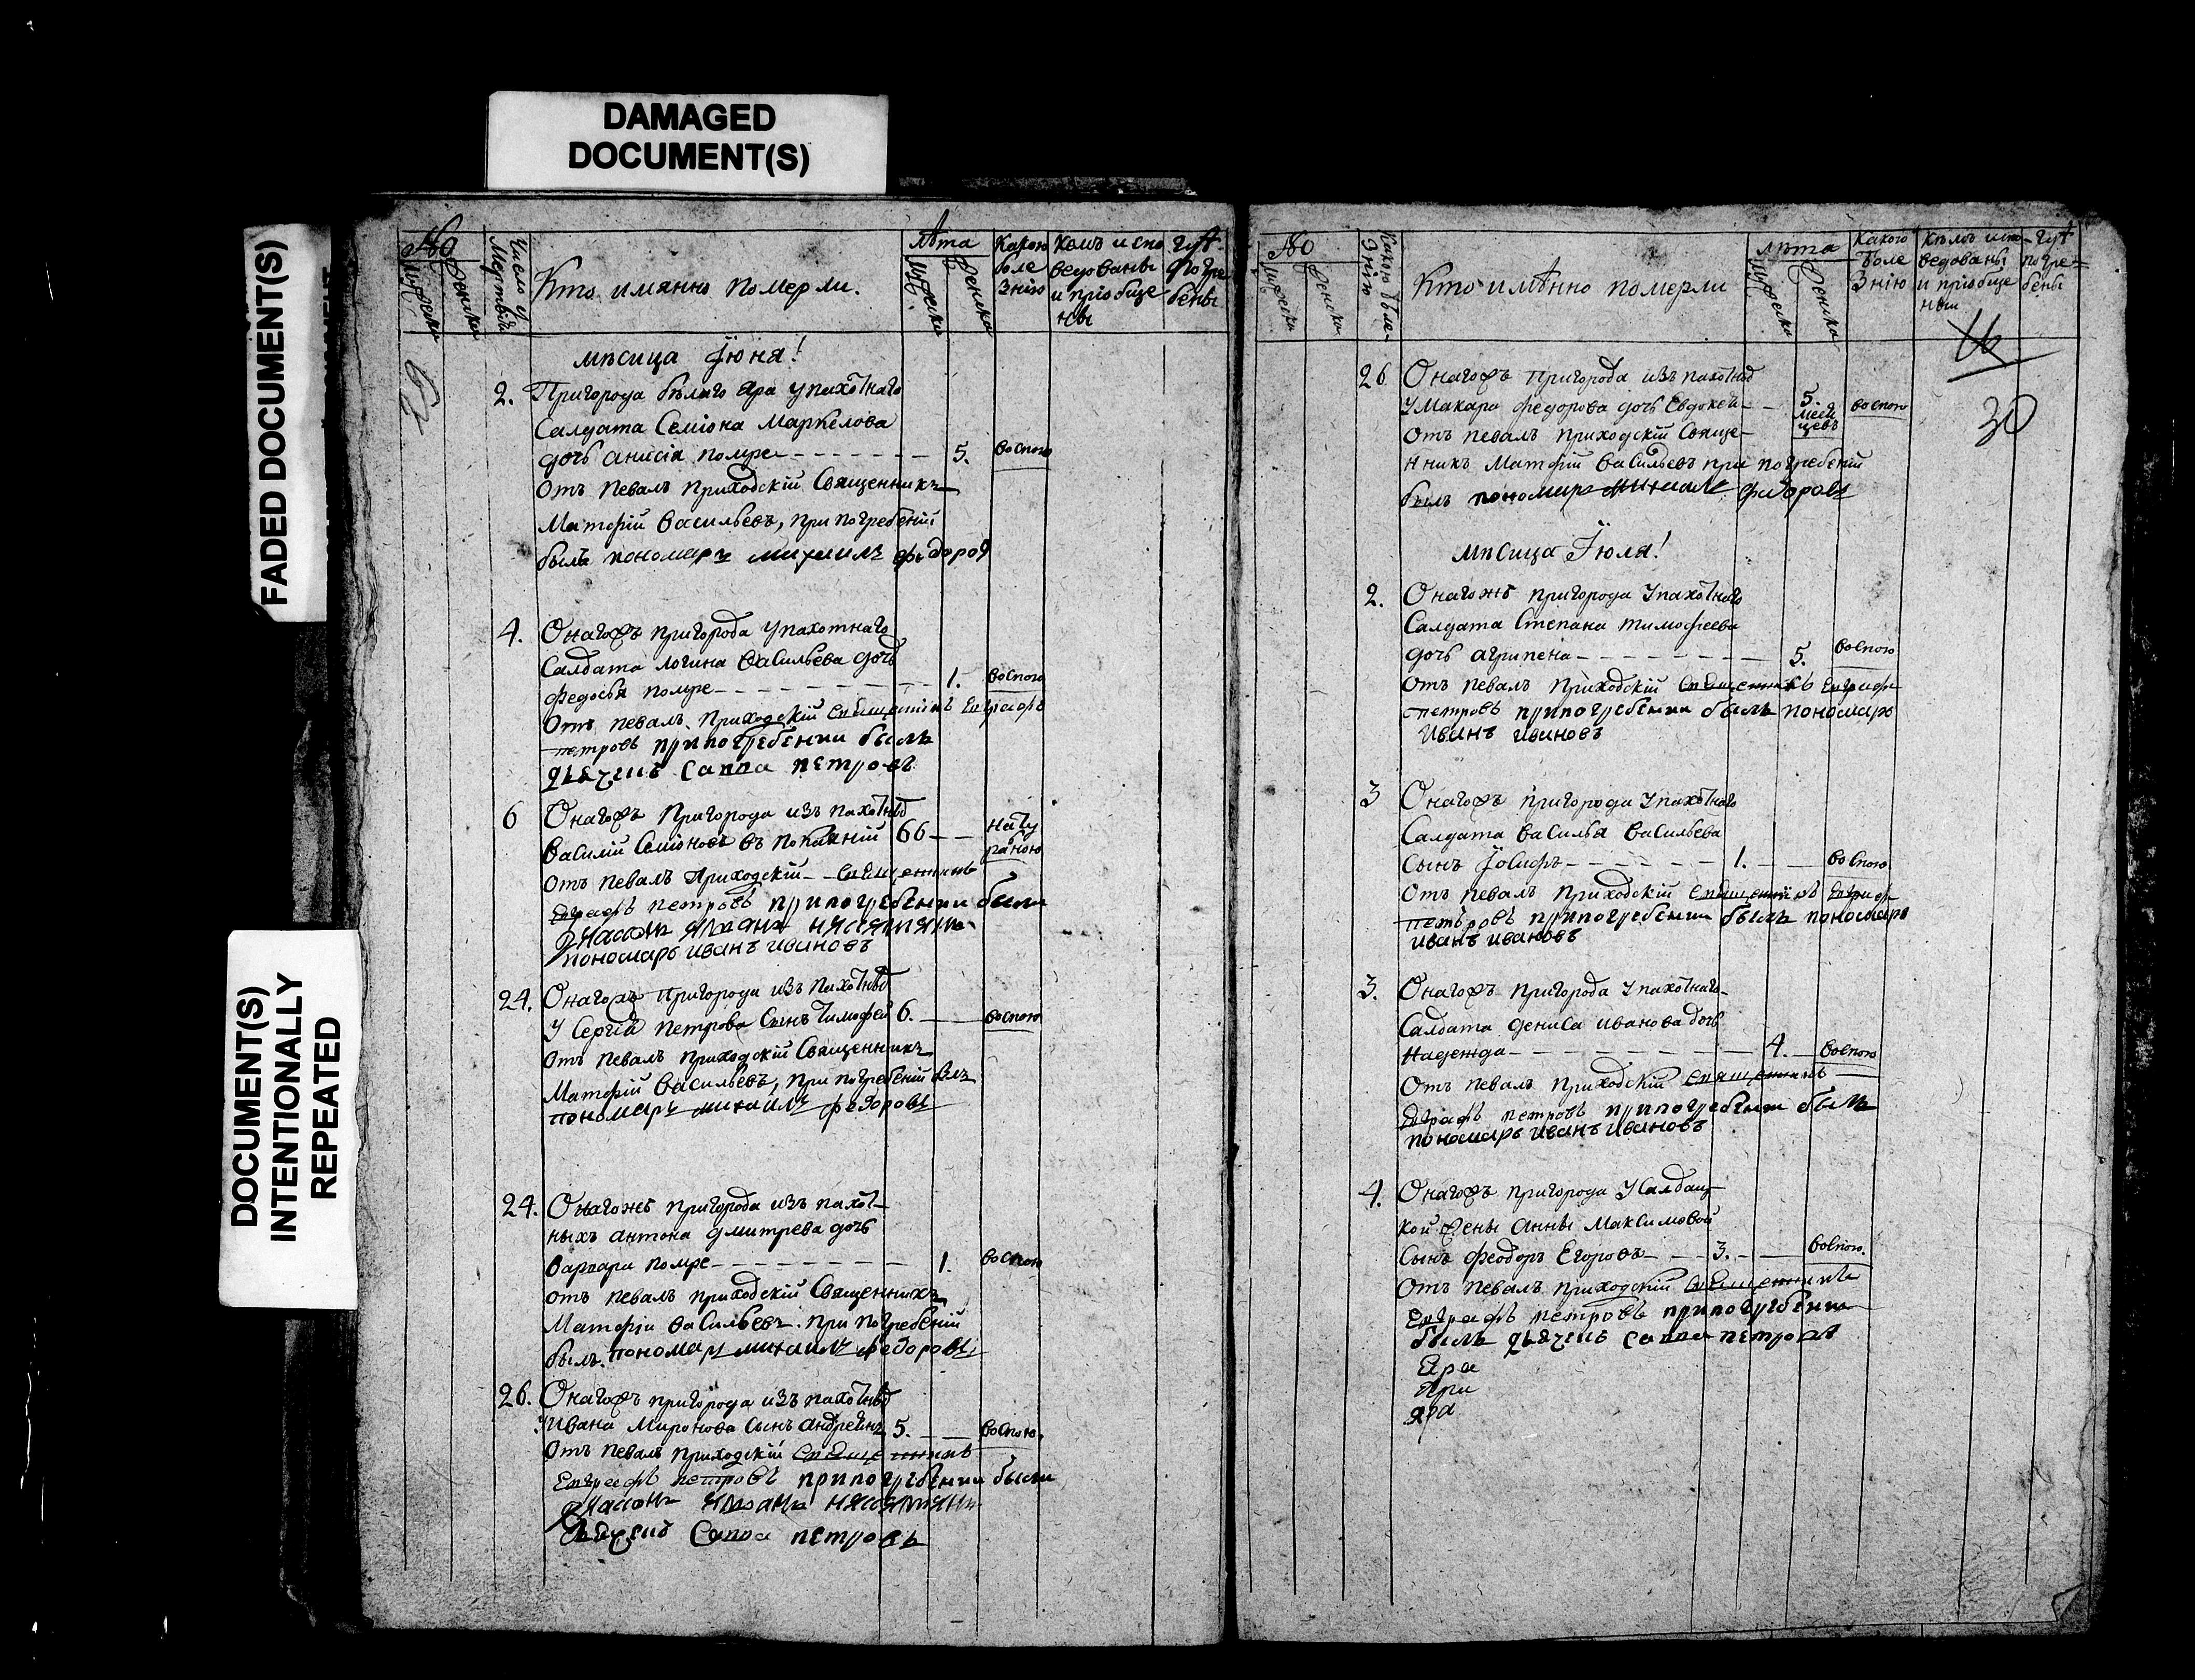 DAMAGED
DOCUMENT(S)
FADED DOCUMENT(S)
DOCUMENT(S)
INTENTIONALLY
REPEATED
№
Число у
Мертвіи
Кто имянно померли.
лѣта
Какою
боле
знію
кемъ испо
ведованы
и приобще
ны
гдѣ
погре
бены
мѣсица Їюня!
2. Пригорода бѣлаго Яра у пахотнаго
Салдата Семіона Маркелова
дочь анисія помре 5. воспою
отъ певалъ приходскій Священникъ
Матфій Васильевъ, при погребеніи
былъ пономарь михаилъ федоров
4. Онагожъ пригорода у пахотнаго
Салдата логина Васильева дочь
Федосья помре 1. воспою
отъ певалъ приходскій Священникъ Евграфъ
петровъ припогребении былъ
дьячекъ Савва петровъ
6 Онагожъ пригорода изъ пахотныхъ
Василій Семіоновъ въ покаяній 66 нату
ралною
отъ певалъ приходскій Священникъ
Евграфъ петровъ припогребении были
пономарь иванъ ивановъ
24. Онагожъ пригорода изъ пахотныхъ
у Сергія петрова Сынъ Тимофей 6. воспою
отъ певалъ приходскій Священникъ
Матфій Васильевъ, при погребеній былъ
пономарь михаилъ федоровъ
24. Онагожъ пригорода изъ пахот-
ныхъ антона дмитрева дочь
Варвара помре 1. воспою
отъ певалъ приходскій Священникъ
Матфій васильевъ. при погребеній
былъ. пономарь михаилъ федоровъ
26. Онагожъ пригорода изъ пахотныхъ
у Ивана Миронова Сынъ андреянъ 5. воспою.
отъ певалъ приходскій Священникъ
Евграфъ петровъ припогребении были
дьячекъ Савва петровъ
№
Какою боле-
знію
Кто имѣнно померли
лѣта
Какого
боле
знію
кемъ испо-
ведованы
и приобще
ны
гдѣ
погре=
бены
16
30
26 Онагожъ пригорода изъ пахотныхъ
у Макара федорова дочь Евдокея 5. меся
цевъ воспою
отъ певалъ приходскій Свяще-
нникъ Матфій Васильевъ при погребеній
былъ пономарь михаилъ федоровъ
мѣсица Їюля!
2. Онагожъ пригорода у пахотнаго
Салдата Степана тимофеева
дочь агрипена 5. воспою
отъ певалъ приходскій Священникъ Евграфъ
петровъ припогребении былъ пономарь
Иванъ ивановъ
3 Онагожъ пригорода у пахотнаго
Салдата Василья Васильева
Сынъ Їосифъ 1. воспою
отъ певалъ приходскій Священникъ Евграфъ
петровъ припогребении былъ пономарь
иванъ ивановъ
3. Онагожъ пригорода у пахотнаго
Салдата дениса иванова дочь
Надежда 4. воспою
отъ певалъ приходскій Священникъ
Евграфъ петровъ припогребении былъ
пономарь иванъ ивановъ
4. Онагожъ пригорода у Салдац
кой жены анны Максимовой
Сынъ феодоръ Егоровъ 3. воспою.
отъ певалъ приходскій Священникъ
Евграфъ петровъ припогребении
былъ дьячекъ Савва петровъ
Яра